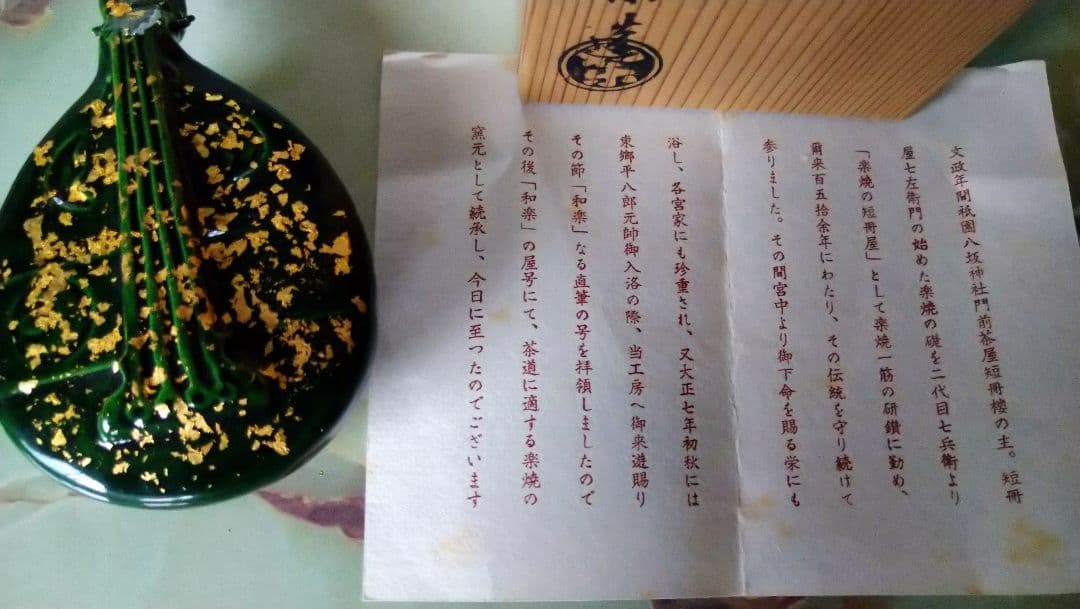 文政年間祇園八坂神社門前茶屋短冊楼の主。短冊
屋七左衛門の始めた楽焼の礎を二代目七兵衛より
「楽焼の短冊屋」として楽焼一筋の研鑽に勤め、
爾来百五拾余年にわたり、その伝統を守り続けて
参りました。その間宮中より御下命を賜る栄にも
浴し、各宮家にも珍重され、又大正七年初秋には
東郷平八郎元師御入洛の際、当工房へ御来遊賜り
その節「和楽」なる直筆の号を拝領しましたので
その後「和楽」の屋号にて、茶道に適する楽焼の
窯元として続承し、今日に至ったのでございます